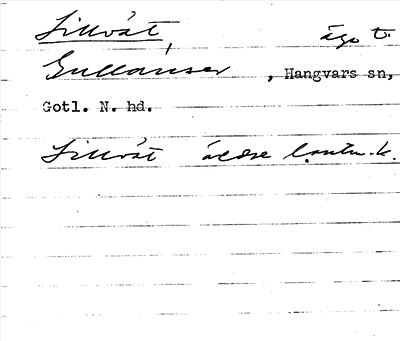 Lillvät, äga t.
Gullauser, Hangvars sn,
Gotl. N. hd.
Lillvät äldre lantm.k.